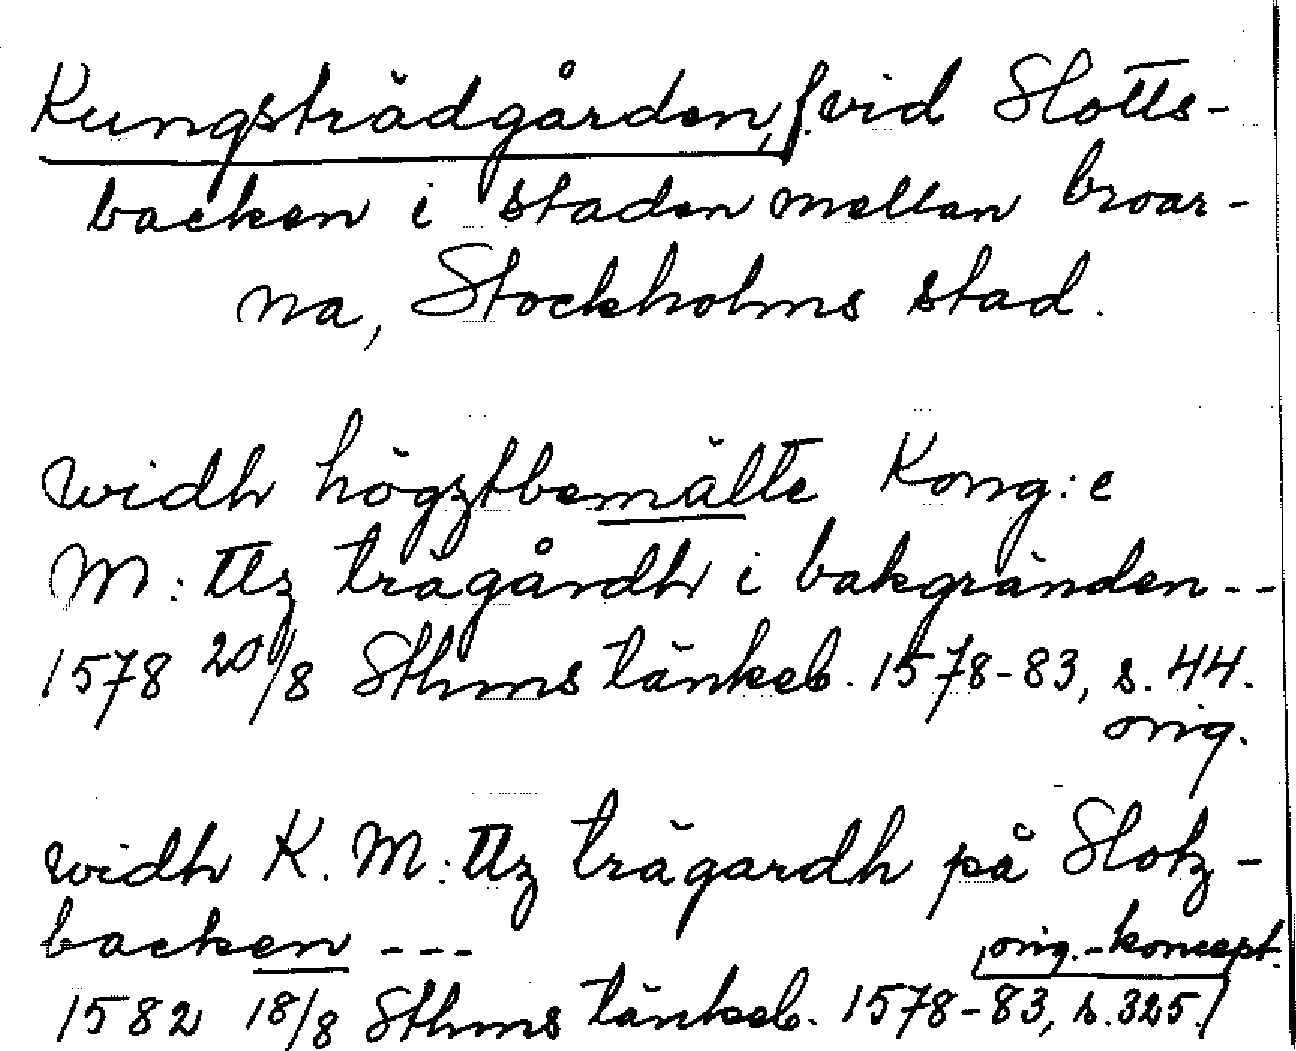 Kungsträdgården, f. vid Slotts-
backen i staden mellan broar-
na, Stockholms stad.
widh högztbemälte Kong:e
M:ttz trägårdh i bakgränden--
1578 20/8 Sthms tänkeb. 1578-83, s. 44.
orig.
widh K. M:ttz trägardh på Slotz-
backen ---
orig.-koncept.
1582 18/8 Sthms tänkeb. 1578-83, s. 325.